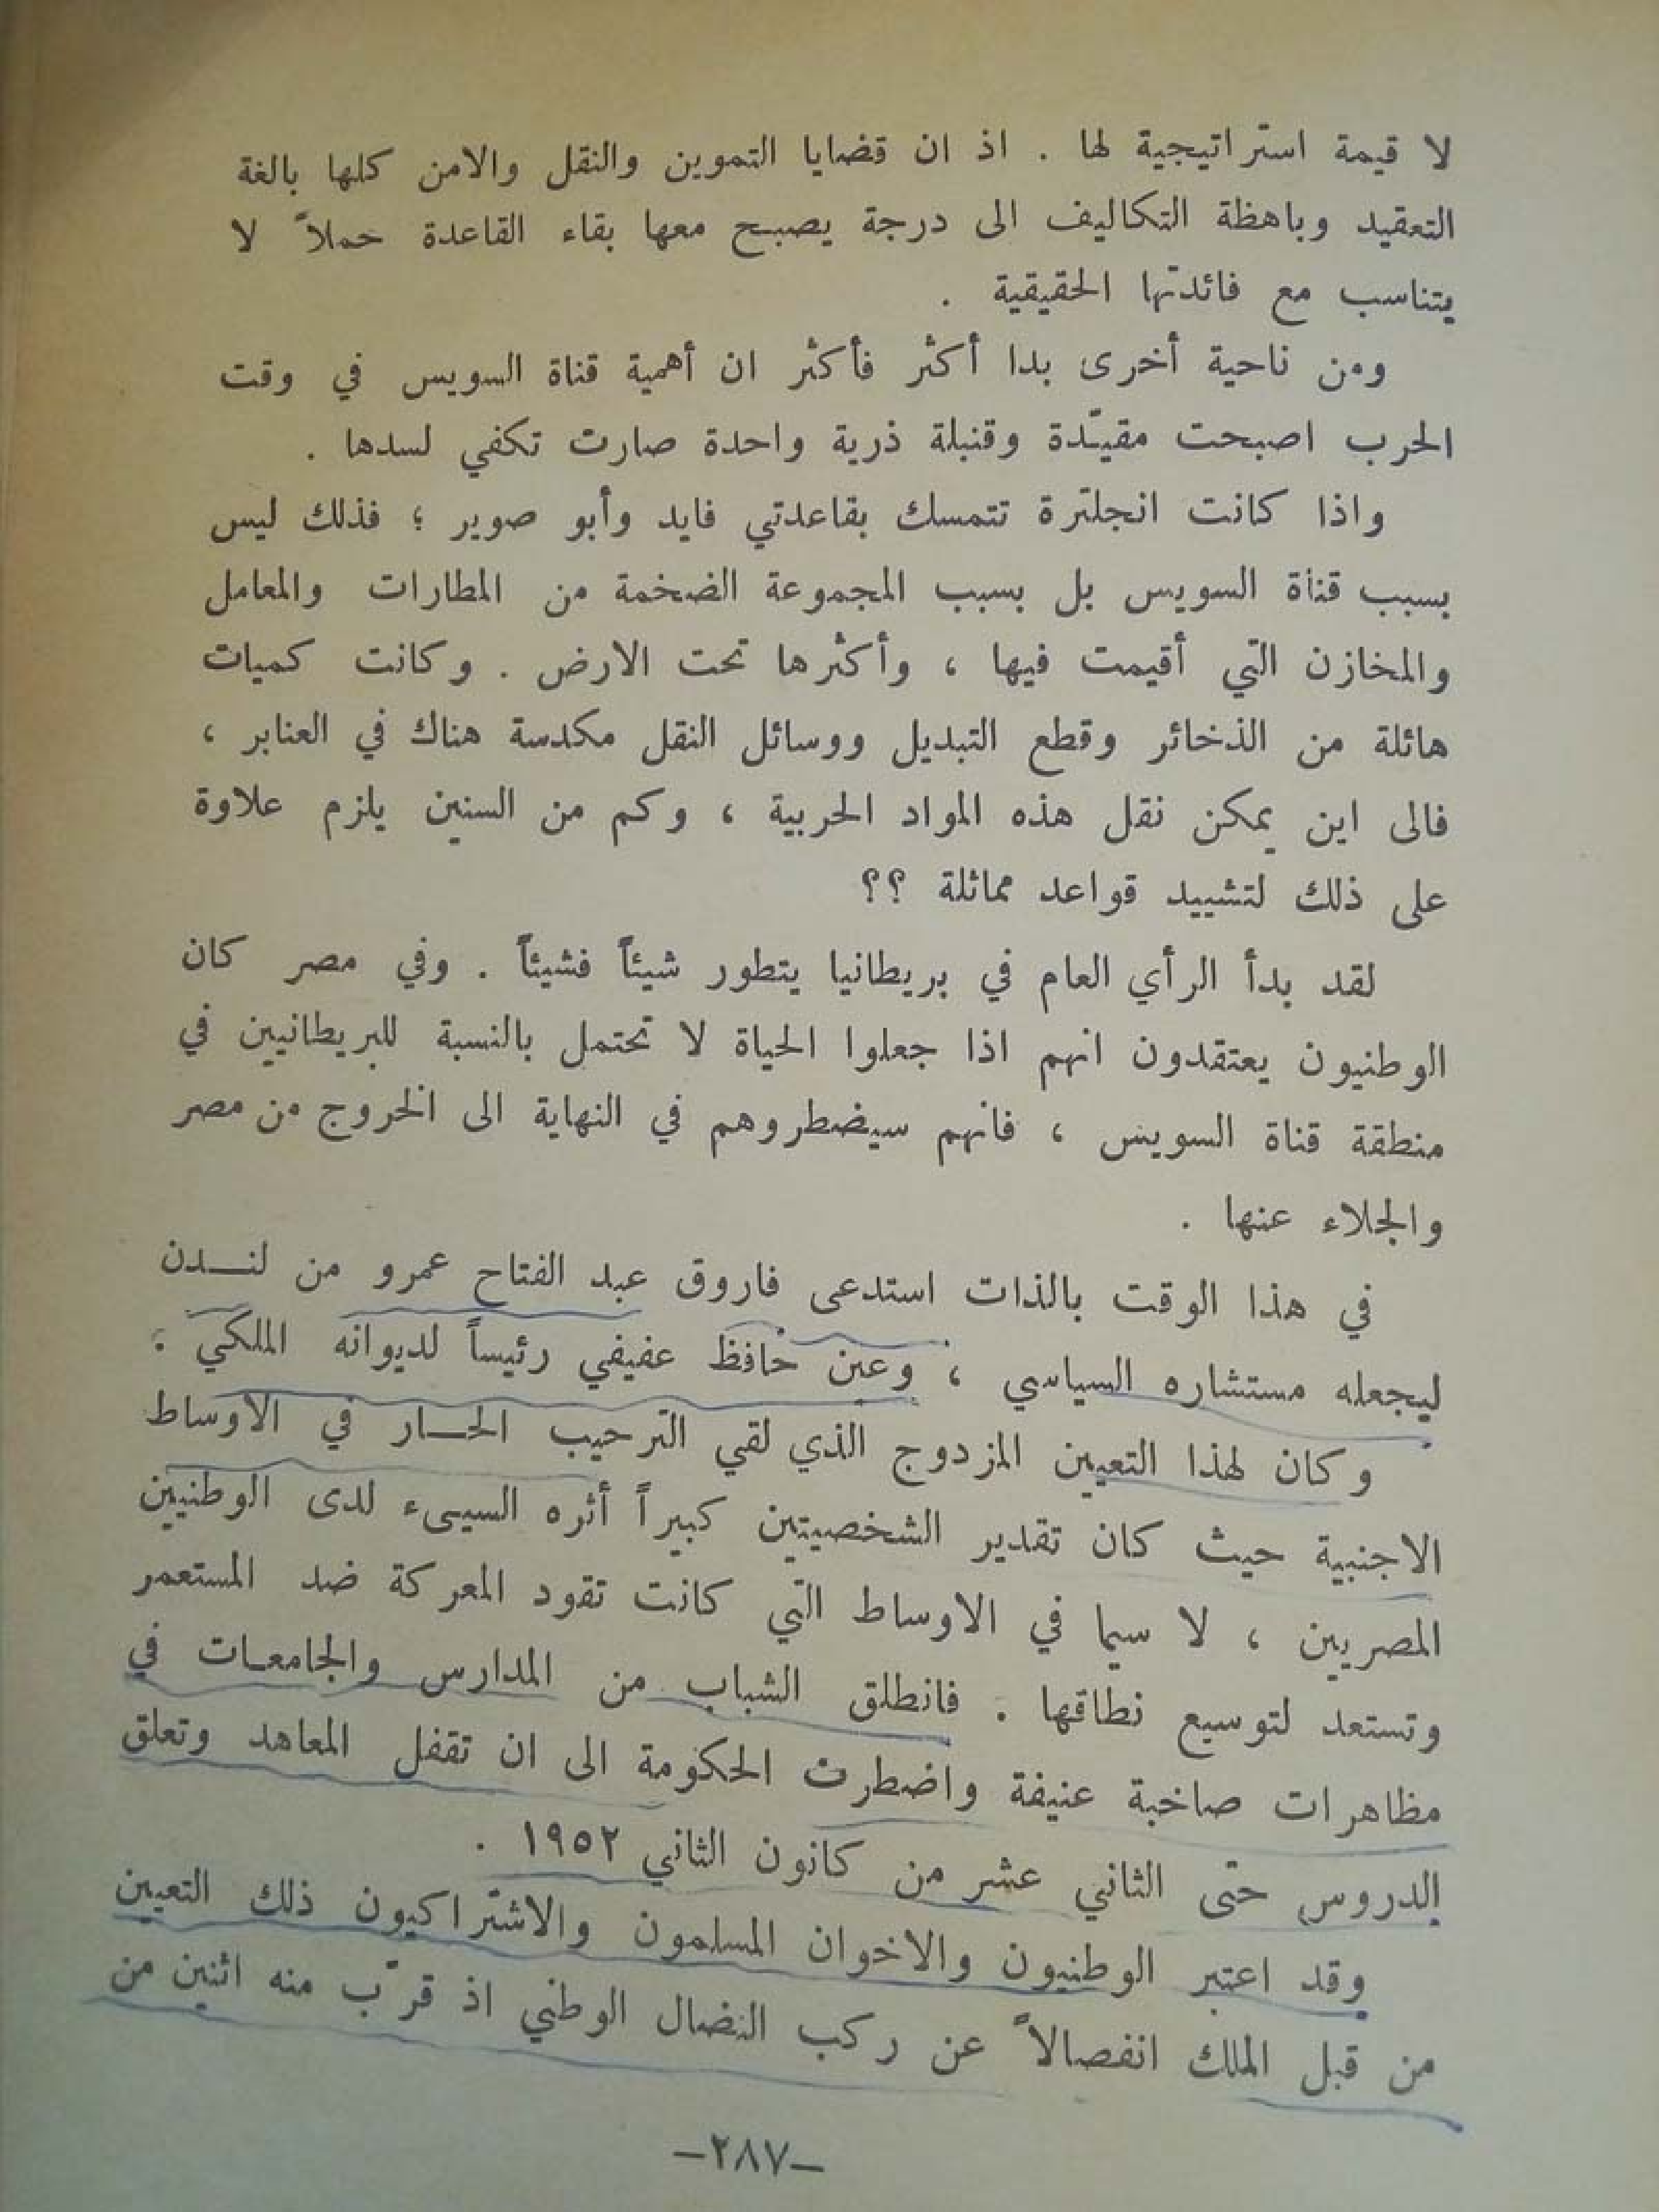 لا قيمة استراتيجية لها . اذ ان قضايا التموين والنقل والامن كلها بالغة
التعقيد وباهظة التكاليف الى درجة يصبح معها بقاء القاعدة حملاً لا
يتناسب مع فائدتها الحقيقية .
ومن ناحية أخرى بدا أكثر فأكثر ان أهمية قناة السويس في وقت
الحرب اصبحت مقيّدة وقنبلة ذرية واحدة صارت تكفي لسدها .
واذا كانت انجلترة تتمسك بقاعدتي فايد وأبو صوير ؛ فذلك ليس
بسبب قناة السويس بل بسبب المجموعة الضخمة من المطارات والمعامل
والمخازن التي أقيمت فيها ، وأكثرها تحت الارض . وكانت كميات
هائلة من الذخائر وقطع التبديل ووسائل النقل مكدسة هناك في العنابر ،
فالى اين يمكن نقل هذه المواد الحربية ، وكم من السنين يلزم علاوة
على ذلك لتشييد قواعد مماثلة ؟؟
لقد بدأ الرأي العام في بريطانيا يتطور شيئاً فشيئاً . وفي مصر كان
الوطنيون يعتقدون انهم اذا جعلوا الحياة لا تحتمل بالنسبة للبريطانيين في
منطقة قناة السويس ، فانهم سيضطروهم في النهاية الى الخروج من مصر
والجلاء عنها .
في هذا الوقت بالذات استدعى فاروق عبد الفتاح عمرو من لنــدن
ليجعله مستشاره السياسي ، وعين حافظ عفيفي رئيساً لديوانه الملكي .
وكان لهذا التعيين المزدوج الذي لقي الترحيب الحــار في الاوساط
الاجنبية حيث كان تقدير الشخصيتين كبيراً أثره السيىء لدى الوطنيين
المصريين ، لا سيما في الاوساط التي كانت تقود المعركة ضد المستعمر
وتستعد لتوسيع نطاقها . فانطلق الشباب من المدارس والجامعـات في
مظاهرات صاخبة عنيفة واضطرت الحكومة الى ان تقفل المعاهد وتعلق
الدروس حتى الثاني عشر من كانون الثاني ١٩٥٢ .
وقد اعتبر الوطنيون والاخوان المسلمون والاشتراكيون ذلك التعيين
من قبل الملك انفصالاً عن ركب النضال الوطني اذ قرّب منه اثنين من
—٢٨٧—